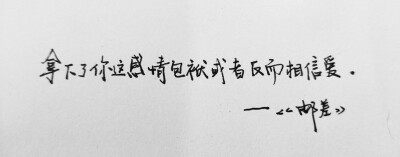 拿下了你这感情包袱或者反而相信爱。
——《邮差》